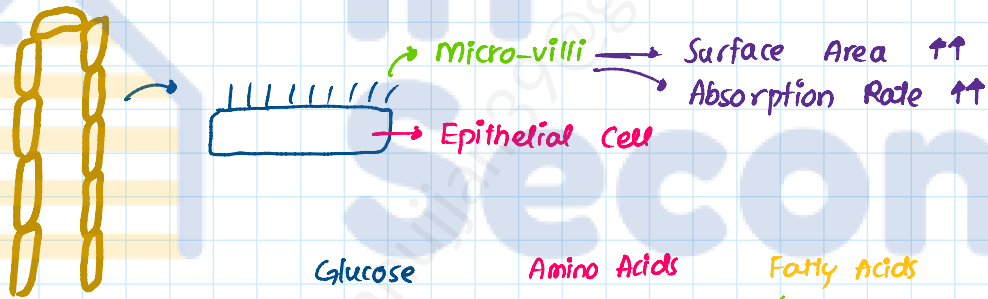 Micro-villi Surface Area ↑↑
Absorption Rate ↑↑
Epithelial Cell
Secon
Glucose Amino Acids Fatty Acids